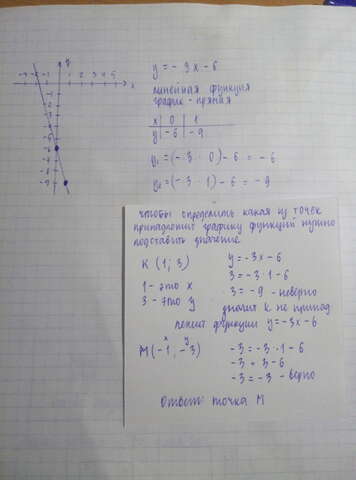 y = - 3x - 6
линейная функция
график - прямая
x | 0 | 1
y | -6 | -9
y₁ = (- 3 · 0) - 6 = - 6
y₂ = (- 3 · 1) - 6 = - 9
чтобы определить какая из точек
принадлежит графику функций нужно
подставить значение
K (1; 3)
y = -3x - 6
3 = -3 · 1 - 6
1 - это x
3 = -9 - неверно
3 - это y
значит K не принад
лежит функции y = -3x - 6
x y
M (-1; -3)
-3 = -3 · 1 - 6
-3 = 3 - 6
-3 = -3 - верно
Ответ: точка M